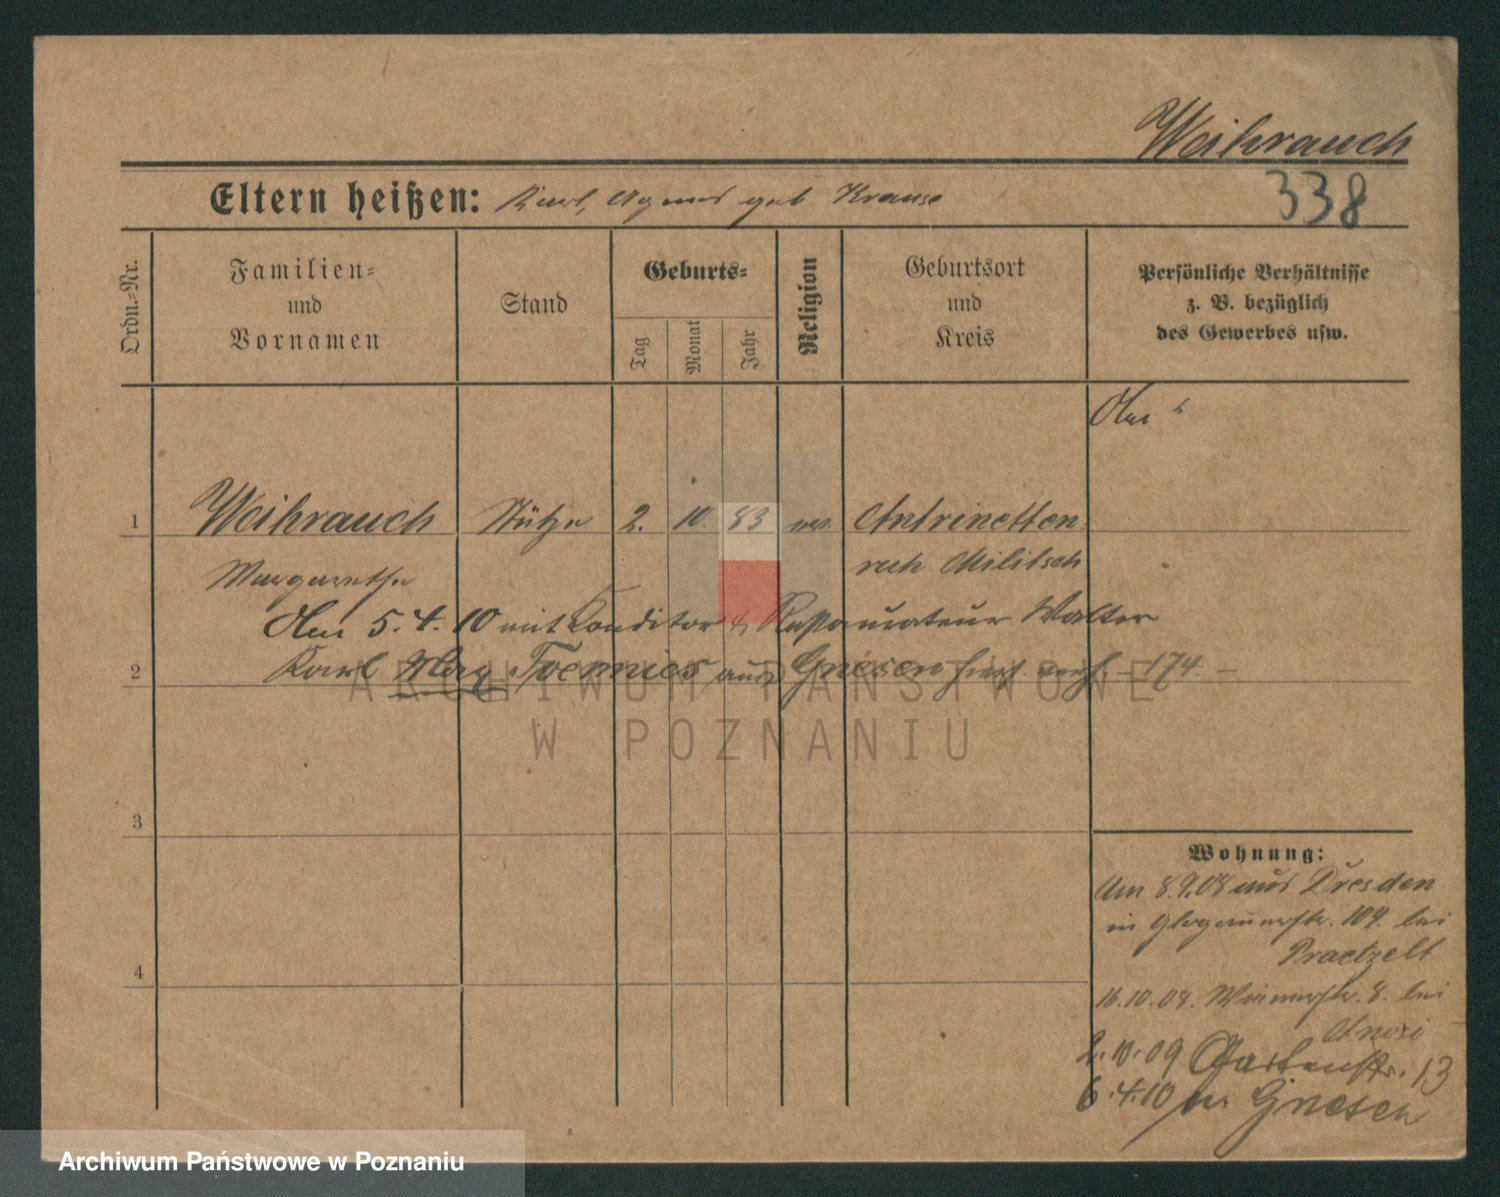 Weihrauch
338
Eltern heißen: Karl, Agnes geb Krause
Ordn.-Nr.
Familien-
und
Vornamen
Stand
Geburts-
Tag
Monat
Jahr
Religion
Geburtsort
und
Kreis
Persönliche Verhältnisse
z. B. bezüglich
des Gewerbes usw.
1 Weihrauch Stütze 2. 10. 83 ev.
Margarethe Militsch
Am 5.4.10 mit Konditor & Restaurateur Walter
2 Karl Max aus Gnesen 174
ARCHIWUM PAŃSTWOWE
W POZNANIU
3
4
Wohnung:
Am 8.9.08 aus Dresden
in Glogauerstr. 109. bei
Praetzelt
16.10.08. 8. bei
2.10.09 Gartenstr. 13
6.4.10 Gnesen
Archiwum Państwowe w Poznaniu